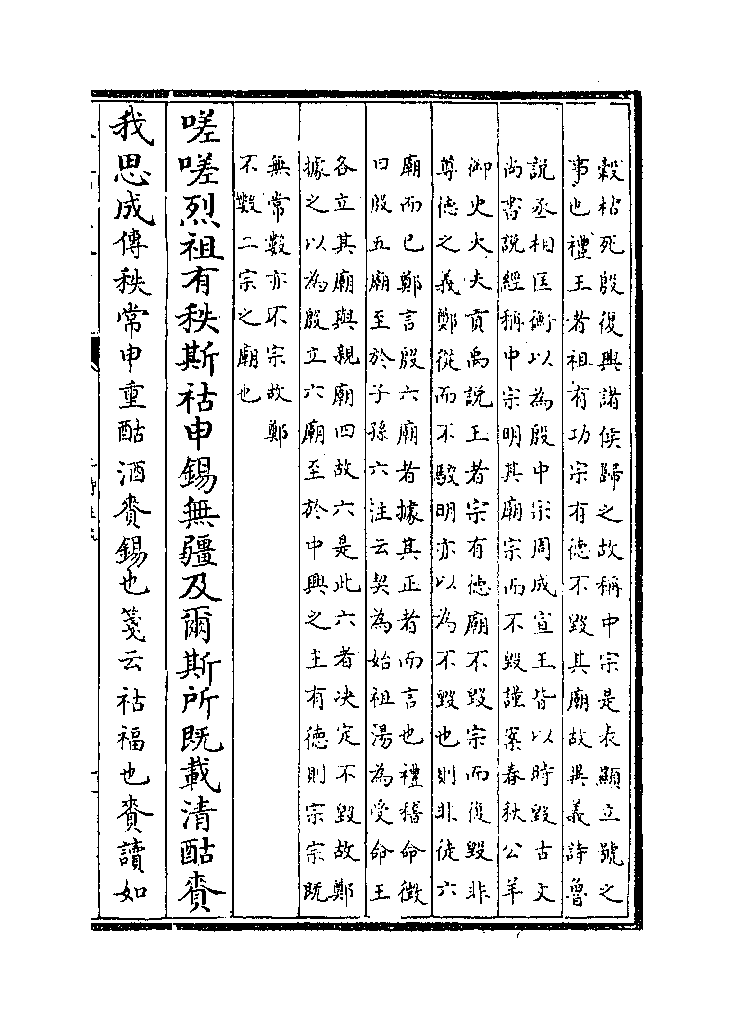 穀枯死殷復興諸侯歸之故稱中宗是表顯立號之
事也禮王者祖有功宗有徳不毀其廟故異義詩魯
說丞相匡衡以為殷中宗周成宣王皆以時毀古文
尚書說經稱中宗明其廟宗而不毀謹案春秋公羊
御史大夫貢禹說王者宗有徳廟不毀宗而復毀非
尊徳之義鄭從而不駮明亦以為不毀也則非徒六
廟而已鄭言殷六廟者據其正者而言也禮稽命徵
曰殷五廟至於子孫六注云契為始祖湯為受命王
各立其廟與親廟四故六是此六者決定不毀故鄭
據之以為殷立六廟至於中興之主有徳則宗宗既
無常數亦不宗故鄭
不數二宗之廟也
嗟嗟烈祖有秩斯祜申錫無疆及爾斯所既載清酤賚
我思成傳秩常申重酤酒賚錫也箋云祜福也賚讀如